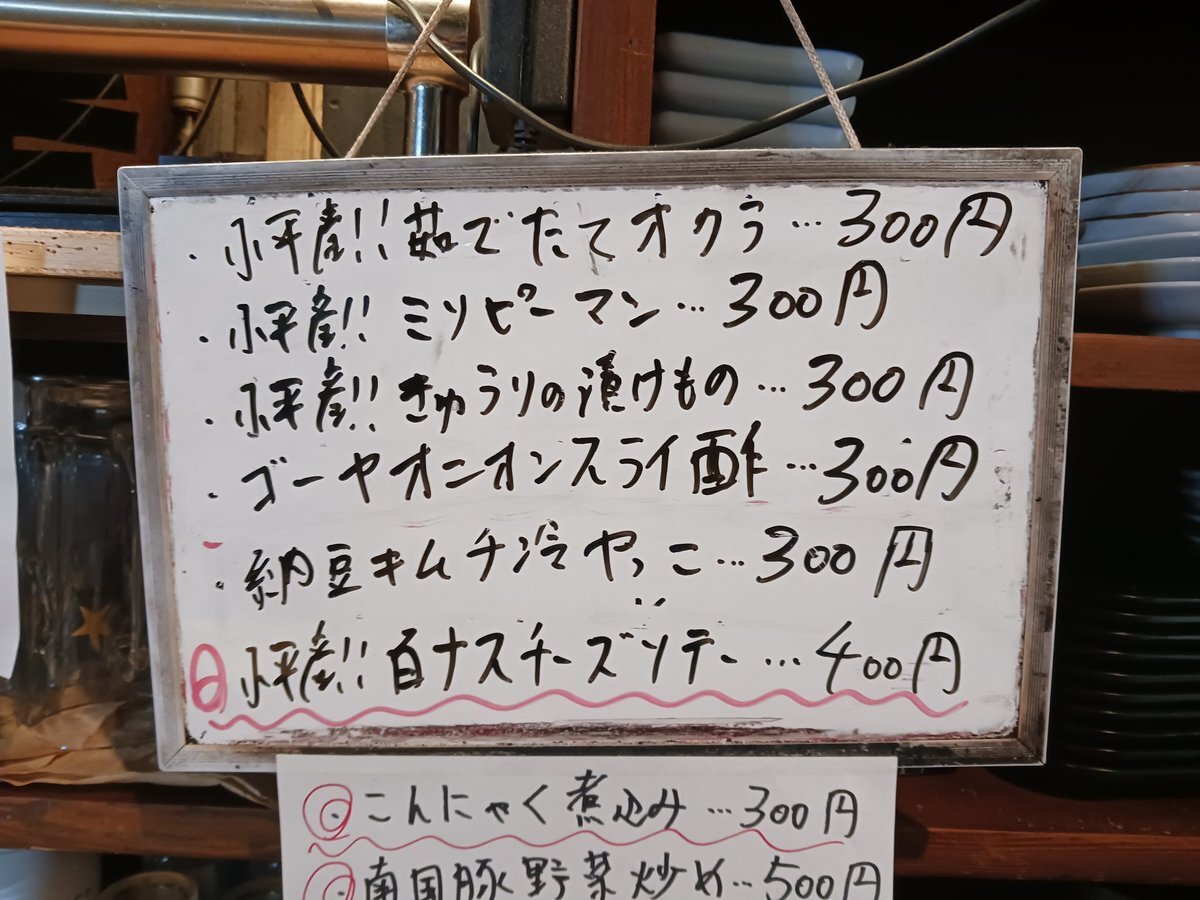 ・小平産!!茹でたてオクラ…300円
・小平産!!ミソピーマン…300円
・小平産!!きゅうりの漬けもの…300円
・ゴーヤオニオンスライ酢…300円
・納豆キムチ冷やっこ…300円
小平産!!白ナスチーズソテー…400円
◎こんにゃく煮込み…300円
◎南国豚野菜炒め…500円